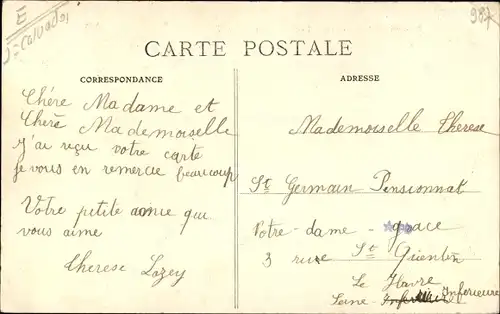 E
J = Calvados
987
CARTE POSTALE
CORRESPONDANCE
Chére Madame et
Cherè Mademoiselle
J'ai reçu votre carte
je vous en remercie beaucoup
Votre petite amie qui
vous aime
therese Lozey
ADRESSE
Mademoiselle therese
St Germain Pensionnat
Notre-dame-grace
3 rue St Quentin
Le Havre
Seine-Inferieure